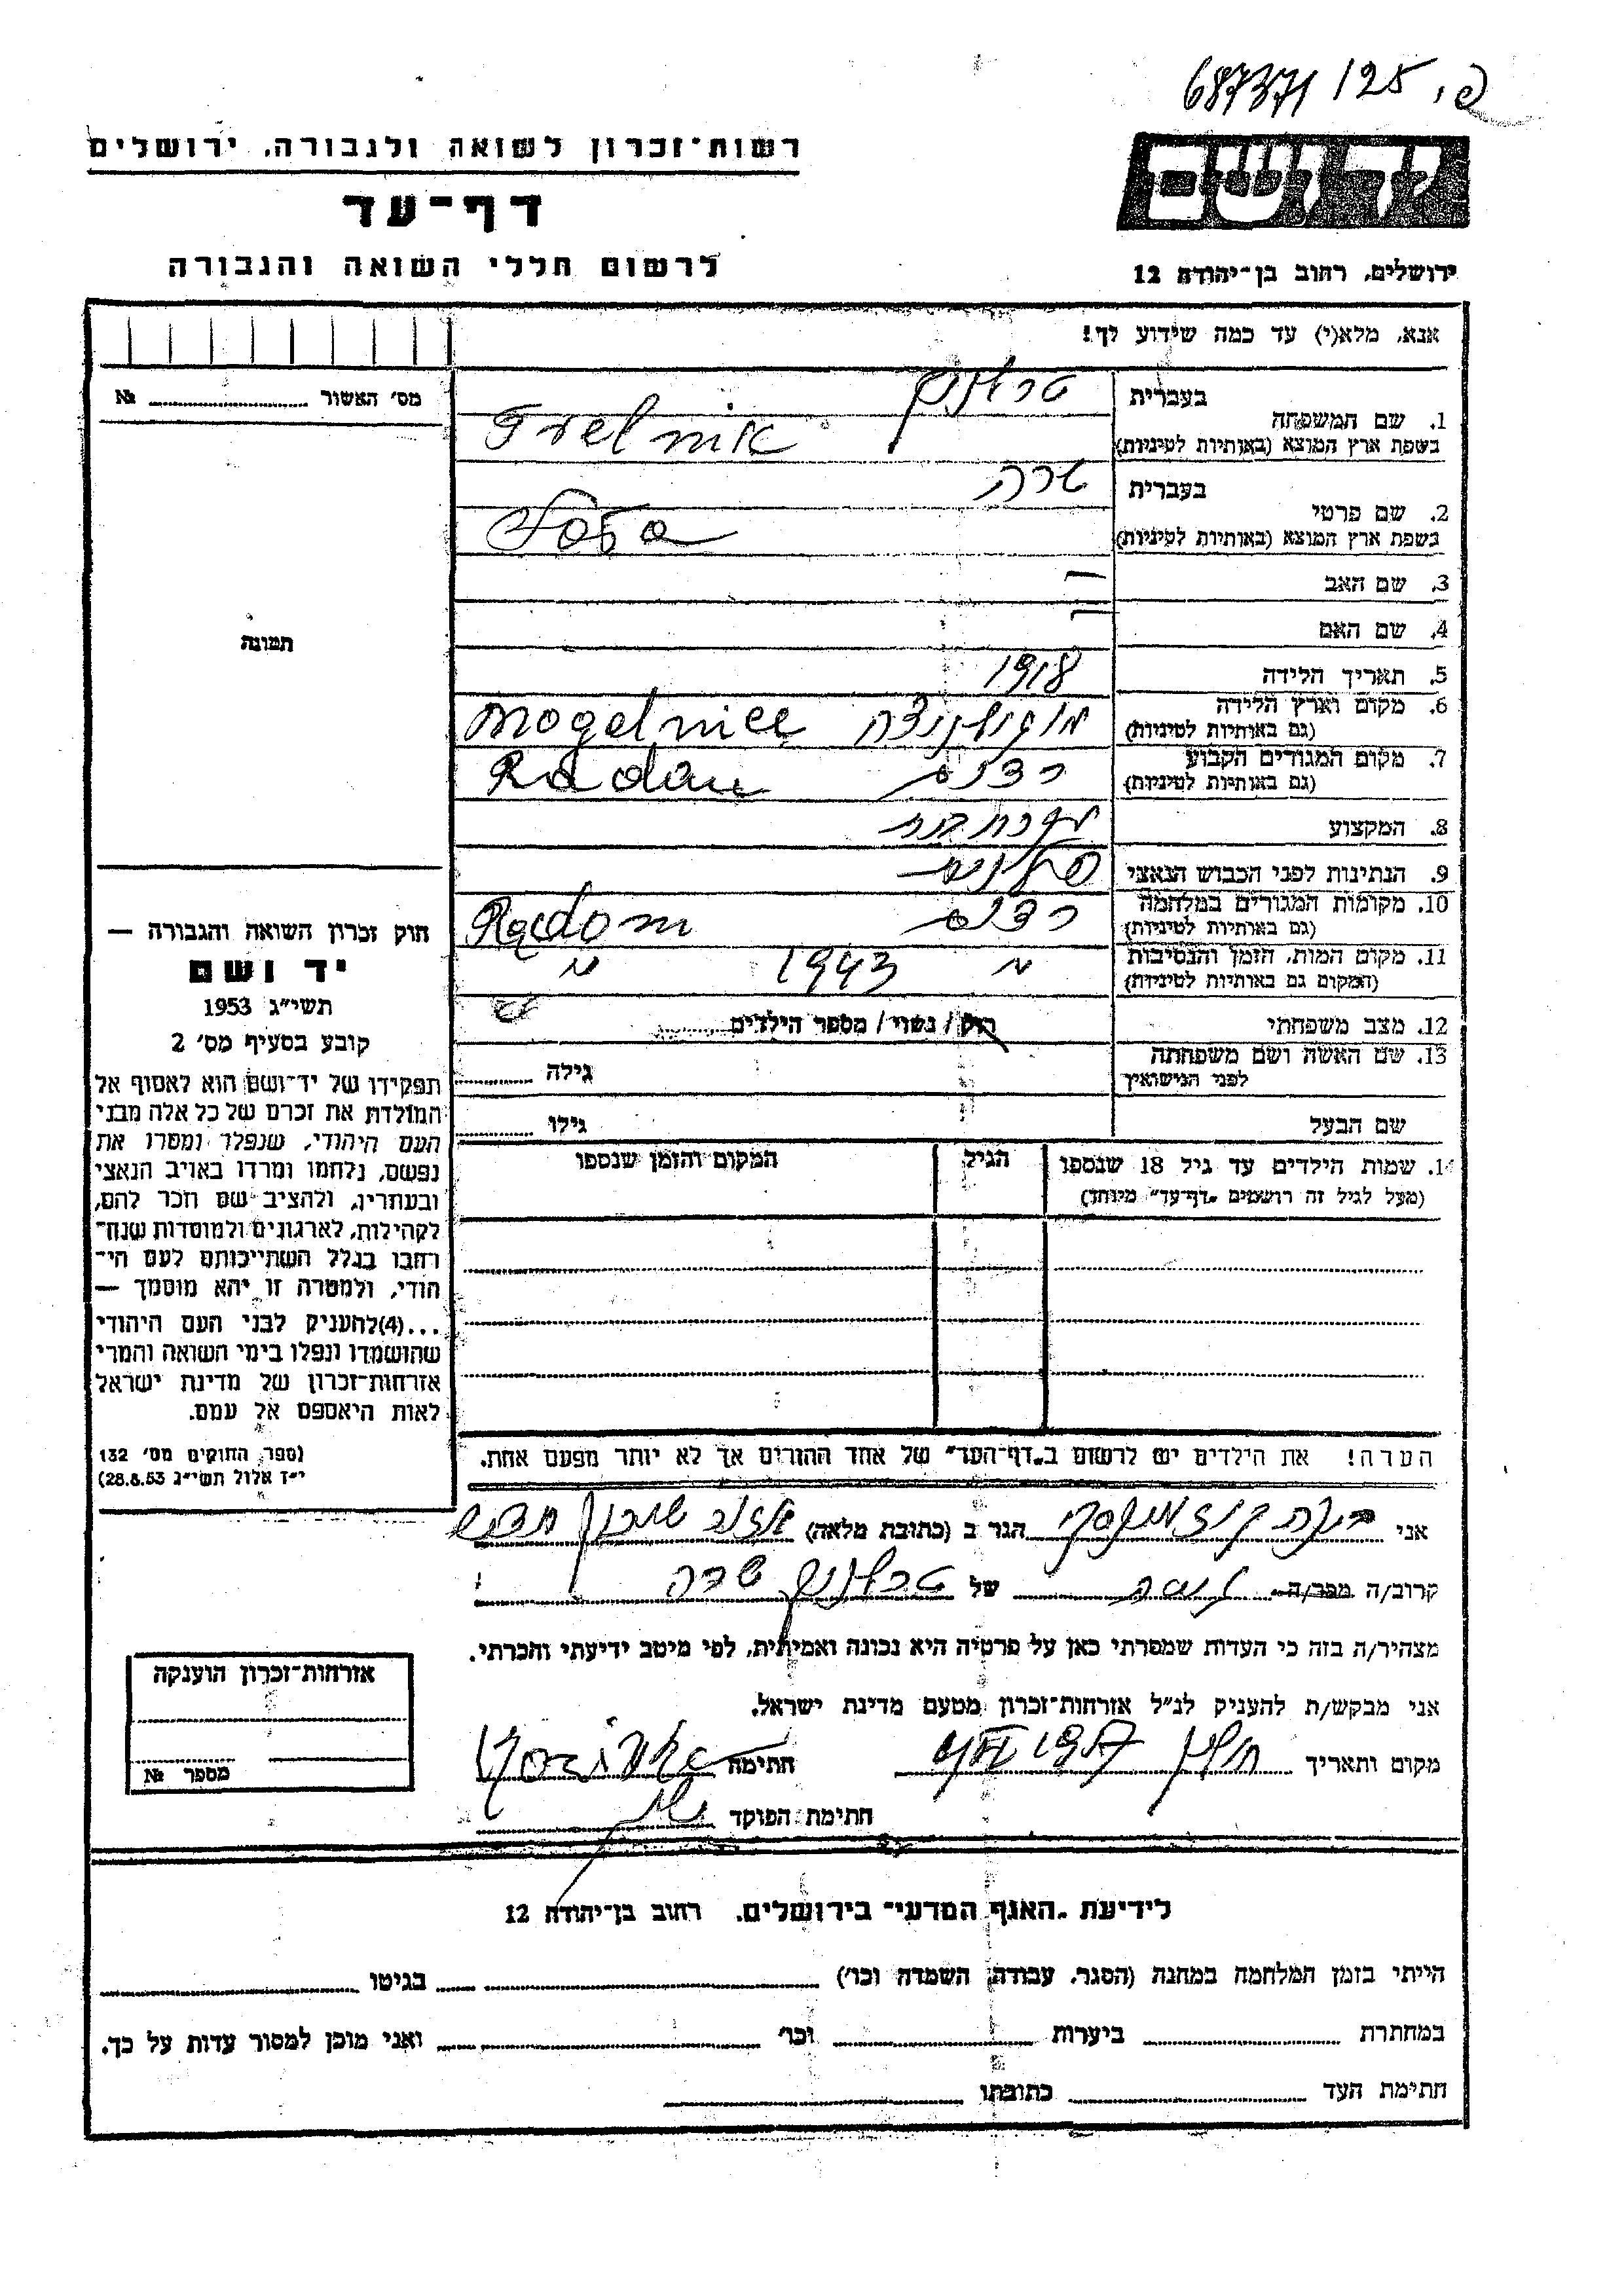 פ. 125 687371
יד ושם
רשות־זכרון לשואה ולגבורה, ירושלים
דף־עד
לרשום חללי השואה והגבורה
ירושלים, רחוב בן־יהודה 12
אנא, מלא(י) עד כמה שידוע לך!
מס׳ האשור № 
תמונה
1. שם המשפחה
בעברית טרלניק
בשפת ארץ המוצא (באותיות לטיניות) Trelnik
2. שם פרטי
בעברית שרה
בשפת ארץ המוצא (באותיות לטיניות)
3. שם האב –
4. שם האם –
5. תאריך הלידה 1918
6. מקום וארץ הלידה
(גם באותיות לטיניות) מוגילניצה Mogelnice
7. מקום המגורים הקבוע
(גם באותיות לטיניות) רדום Radom
8. המקצוע
9. הנתינות לפני הכבוש הנאצי
10. מקומות המגורים במלחמה
(גם באותיות לטיניות) רדום Radom
11. מקום המות, הזמן והנסיבות
(המקום גם באותיות לטיניות) 1943
12. מצב משפחתי רוק / נשוי / מספר הילדים
13. שם האשה ושם משפחתה
לפני הנישואין גילה
שם הבעל גילו
14. שמות הילדים עד גיל 18 שנספו הגיל המקום והזמן שנספו
(מעל לגיל זה רושמים „דף־עד״ מיוחד)
חוק זכרון השואה והגבורה —
יד ושם
תשי״ג 1953
קובע בסעיף מס׳ 2
תפקידו של יד־ושם הוא לאסוף אל
המולדת את זכרם של כל אלה מבני
העם היהודי, שנפלו ומסרו את
נפשם, נלחמו ומרדו באויב הנאצי
ובעוזריו, ולהציב שם וזכר להם,
לקהילות, לארגונים ולמוסדות שנח־
רחבו בגלל השתייכותם לעם הי־
הודי, ולמטרה זו יהא מוסמך —
...(4)להעניק לבני העם היהודי
שהושמדו ונפלו בימי השואה והמרי
אזרחות־זכרון של מדינת ישראל
לאות היאספם אל עמם.
(ספר החוקים מס׳ 132
י״ז אלול תשי״ג 28.8.53)
הערה! את הילדים יש לרשום ב„דף־העד״ של אחד ההורים אך לא יותר מפעם אחת.
אני הגר ב (כתובת מלאה) אזור שיכון
קרוב/ה מכר/ה של טרלניק שרה
מצהיר/ה בזה כי העדות שמסרתי כאן על פרטיה היא נכונה ואמיתית, לפי מיטב ידיעתי והכרתי.
אני מבקש/ת להעניק לנ״ל אזרחות־זכרון מטעם מדינת ישראל.
מקום ותאריך חולון 1957 חתימה
חתימת הפוקד
אזרחות־זכרון הוענקה
מספר №
לידיעת „האגף המדעי״ בירושלים, רחוב בן־יהודה 12
הייתי בזמן המלחמה במחנה (הסגר, עבודה, השמדה וכו׳) בגיטו
במחתרת ביערות וכו׳ ואני מוכן למסור עדות על כך.
חתימת העד כתובתו